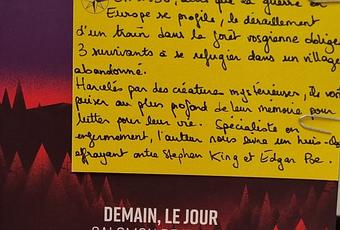 que la guerre
Europe se profile, le déraillement
d'un train dans la forêt vosgienne oblige
3 survivants à se réfugier dans un village
abandonné.
Harcelés par des créatures mystérieuses, ils vont
puiser au plus profond de leur mémoire pour
lutter pour leur vie. Spécialiste en
l'auteur nous livre un huis-clos
effrayant entre Stephen King et Edgar Poe.
DEMAIN, LE JOUR
SALOMON